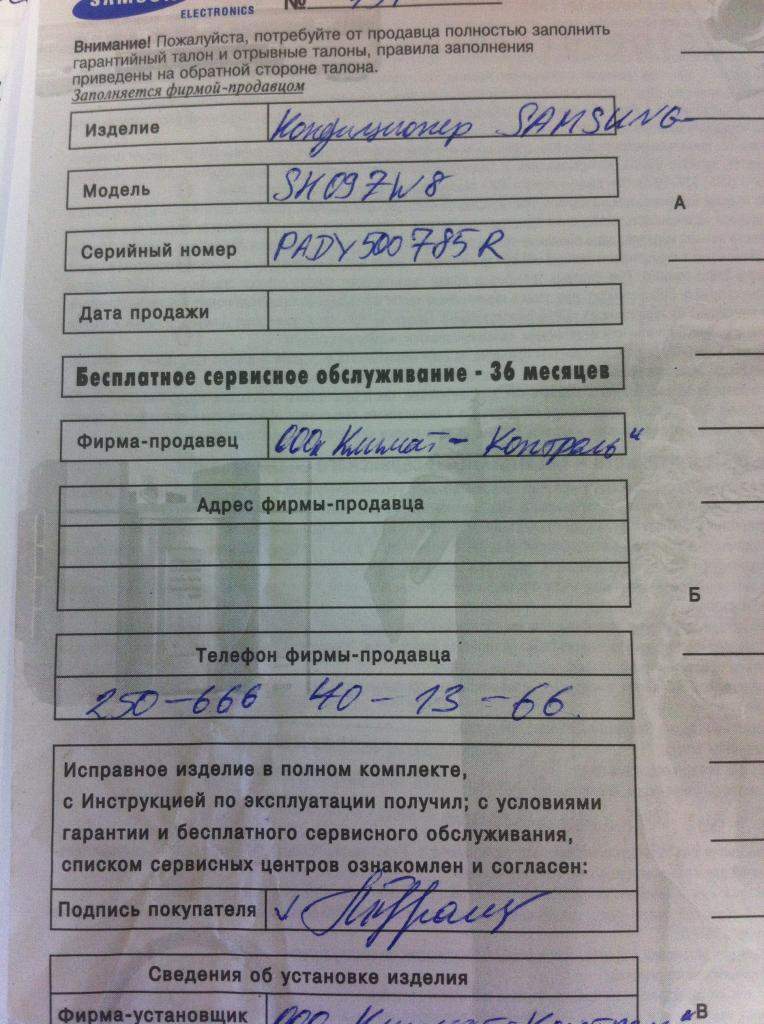 SAMSUNG
ELECTRONICS
№
Внимание! Пожалуйста, потребуйте от продавца полностью заполнить
гарантийный талон и отрывные талоны, правила заполнения
приведены на обратной стороне талона.
Заполняется фирмой-продавцом
Изделие Кондиционер SAMSUNG
Модель SH09ZW8
Серийный номер PADY500785R
Дата продажи
Бесплатное сервисное обслуживание - 36 месяцев
Фирма-продавец ООО „Климат-Контроль“
Адрес фирмы-продавца
Телефон фирмы-продавца
250-666 40-13-66.
Исправное изделие в полном комплекте,
с Инструкцией по эксплуатации получил; с условиями
гарантии и бесплатного сервисного обслуживания,
списком сервисных центров ознакомлен и согласен:
Подпись покупателя
Сведения об установке изделия
Фирма-установщик ООО Климат-Контроль“
А
Б
В